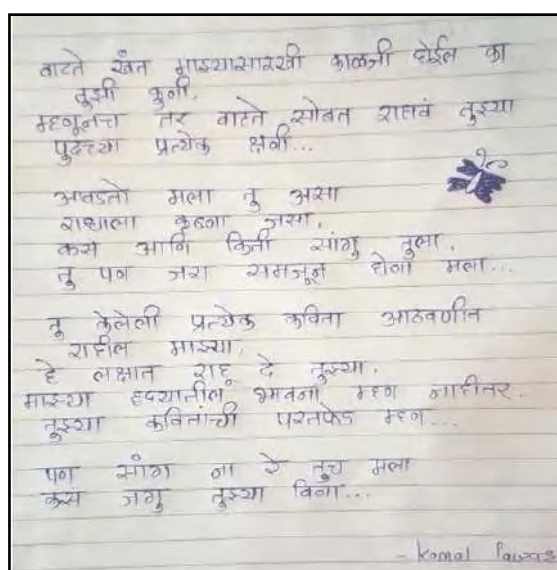 वाटते खंत माझ्यासारखी काळजी घेईल का
तुझी कुनी,
म्हणूनच तर वाटते सोबत राहावं तुझ्या
पुढच्या प्रत्येक क्षनी...
आवडतो मला तु असा
राधाला कृष्णा जसा,
कसं आणि किती सांगु तुला,
तु पण जरा समजून घेना मला...
तु केलेली प्रत्येक कविता आठवणीत
राहील माझ्या,
हे लक्षात राहू दे तुझ्या.
माझ्या हृदयातील भावना म्हण नाहीतर
तुझ्या कवितांची परतफेड म्हण...
पण सांग ना रे तुच मला
कसं जगु तुझ्या विना...
- Komal